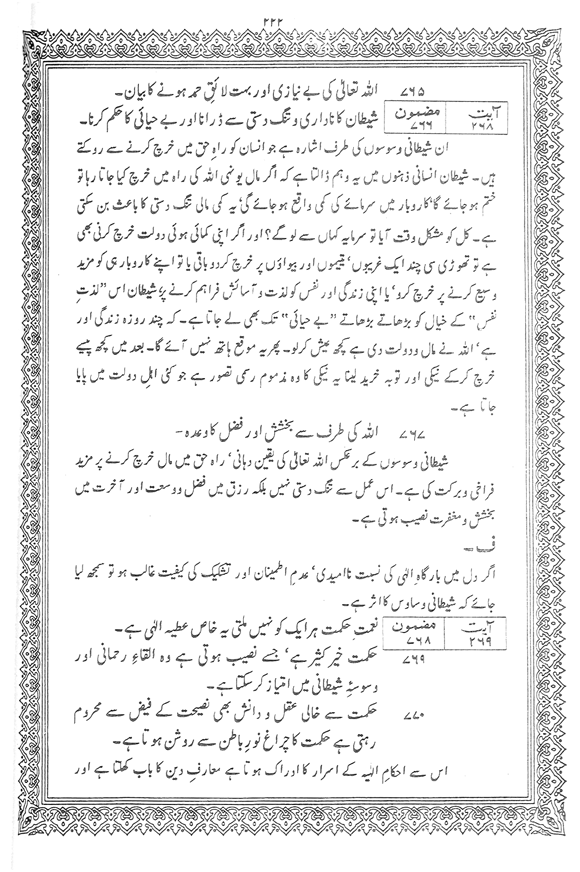 ۲۲۲
۷۶۵ اللہ تعالیٰ کی بے نیازی اور بہت لائقِ حمد ہونے کا بیان۔
آیت ۲۶۸ مضمون ۷۶۶ شیطان کا ناداری و تنگ دستی سے ڈرانا اور بے حیائی کا حکم کرنا۔
ان شیطانی وسوسوں کی طرف اشارہ ہے جو انسان کو راہِ حق میں خرچ کرنے سے روکتے
ہیں۔ شیطان انسانی ذہنوں میں یہ وہم ڈالتا ہے کہ اگر مال یونہی اللہ کی راہ میں خرچ کیا جاتا رہا تو
ختم ہو جائے گا‘ کاروبار میں سرمائے کی کمی واقع ہو جائے گی‘ یہ کمی مالی تنگ دستی کا باعث بن سکتی
ہے۔ کل کو مشکل وقت آیا تو سرمایہ کہاں سے لو گے؟ اور اگر اپنی کمائی ہوئی دولت خرچ کرنی بھی
ہے تو تھوڑی سی چند ایک غریبوں‘ یتیموں اور بیواؤں پر خرچ کر دو باقی یا تو اپنے کاروبار ہی کو مزید
وسیع کرنے پر خرچ کرو‘ یا اپنی زندگی اور نفس کو لذت و آسائش فراہم کرنے پر‘ شیطان اس ”لذتِ
نفس“ کے خیال کو بڑھاتے بڑھاتے ”بے حیائی“ تک بھی لے جاتا ہے۔ کہ چند روزہ زندگی اور
ہے‘ اللہ نے مال و دولت دی ہے کچھ عیش کر لو۔ پھر یہ موقع ہاتھ نہیں آئے گا۔ بعد میں کچھ پیسے
خرچ کر کے نیکی اور توبہ خرید لینا یہ نیکی کا وہ مذموم رسمی تصور ہے جو کئی اہلِ دولت میں پایا
جاتا ہے۔
۷۶۷ اللہ کی طرف سے بخشش اور فضل کا وعدہ۔
شیطانی وسوسوں کے برعکس اللہ تعالیٰ کی یقین دہانی‘ راہِ حق میں مال خرچ کرنے پر مزید
فراخی و برکت کی ہے۔ اس عمل سے تنگ دستی نہیں بلکہ رزق میں فضل و وسعت اور آخرت میں
بخشش و مغفرت نصیب ہوتی ہے۔
ف۔
اگر دل میں بارگاہِ الٰہی کی نسبت ناامیدی‘ عدمِ اطمینان اور تشکیک کی کیفیت غالب ہو تو سمجھ لیا
جائے کہ شیطانی وساوس کا اثر ہے۔
آیت ۲۶۹ مضمون ۷۶۸ نعمتِ حکمت ہر ایک کو نہیں ملتی یہ خاص عطیہ الٰہی ہے۔
۷۶۹ حکمت خیرِ کثیر ہے‘ جسے نصیب ہوتی ہے وہ القاءِ رحمانی اور
وسوسۂ شیطانی میں امتیاز کر سکتا ہے۔
۷۷۰ حکمت سے خالی عقل و دانش بھی نصیحت کے فیض سے محروم
رہتی ہے حکمت کا چراغ نورِ باطن سے روشن ہوتا ہے۔
اس سے احکامِ الٰہیہ کے اسرار کا ادراک ہوتا ہے معارفِ دین کا باب کھلتا ہے اور